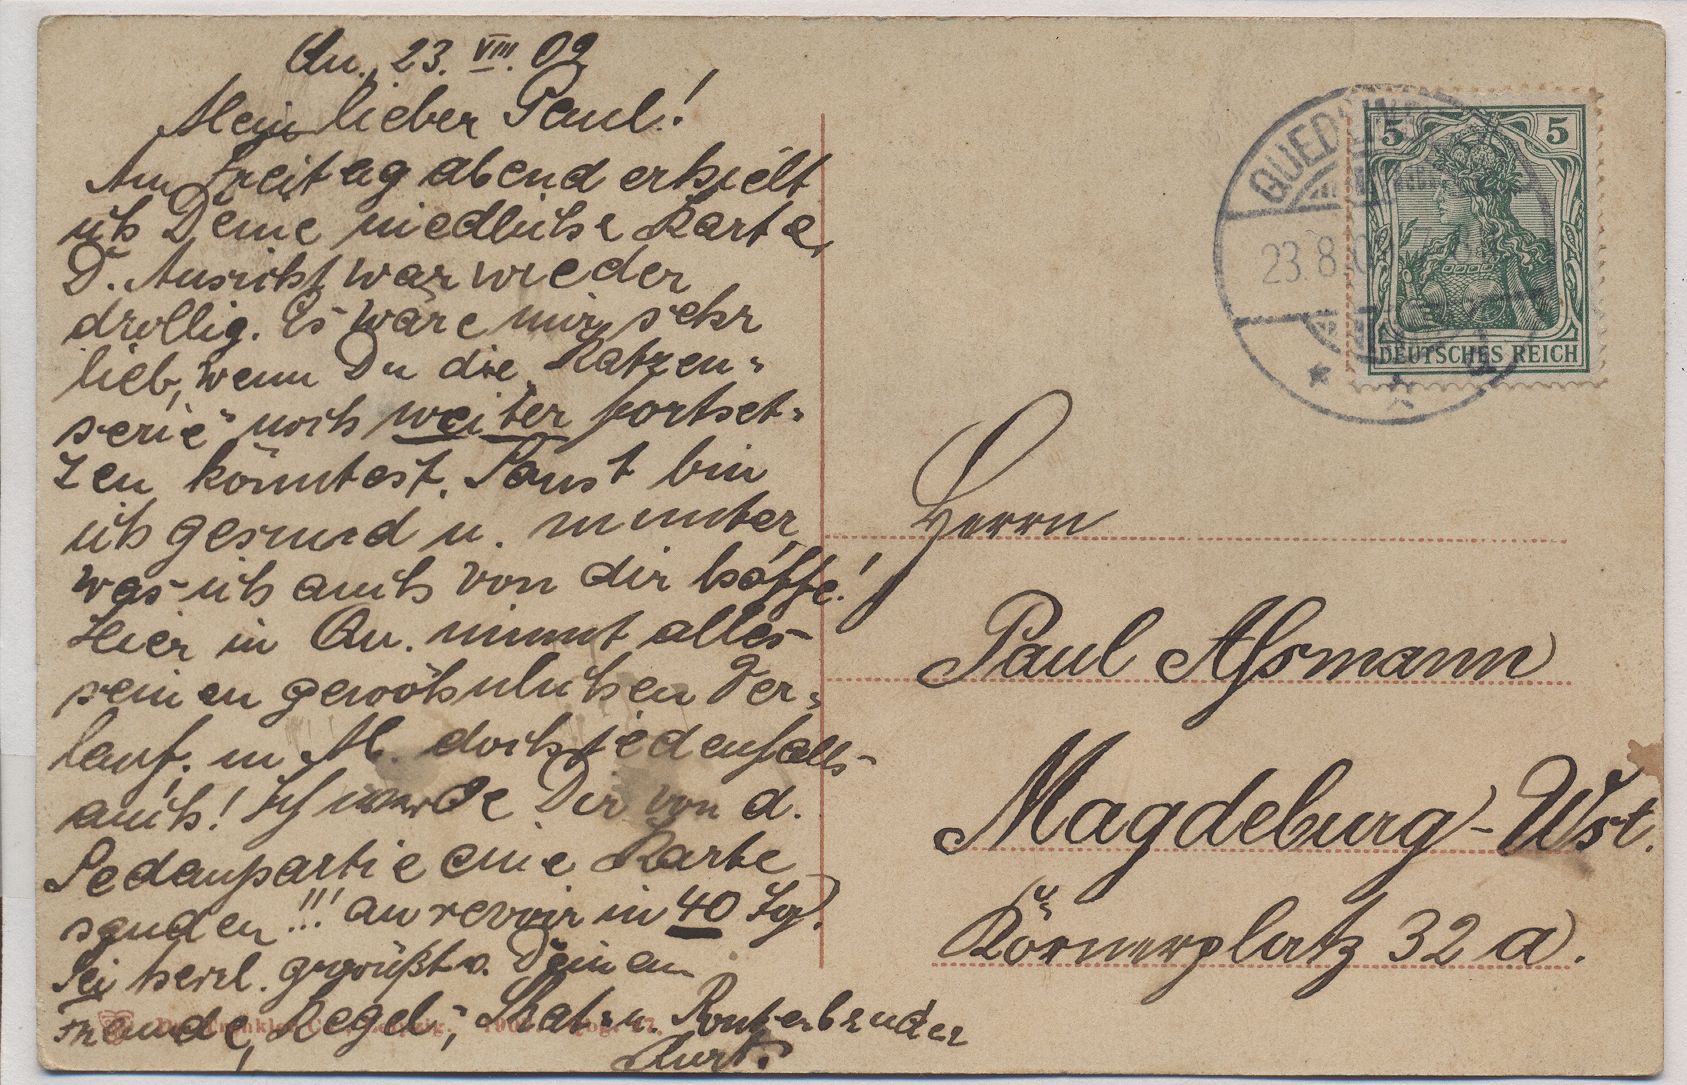 Qu., 23. VIII. 09
Mein lieber Paul!
Am Freitag abend erhielt
ich Deine niedliche Karte,
D. Ansicht war wieder
drollig. Es wäre mir sehr
lieb, wenn Du die „Katzen-
serie“ noch weiter fortset-
zen könntest. Sonst bin
ich gesund u. munter,
was ich auch von dir hoffe!
Hier in Qu. nimmt alles
seinen gewöhnlichen Ver-
lauf, in M. doch jedenfalls
auch! Ich werde Dir von d.
Sedanpartie eine Karte
senden!!! au revoir in 40 Tg.
Sei herzl. gegrüßt v. Deinem
Freunde, Kegel-, Skat- u.
Kurt.
QUED
23.8.0
5 5
DEUTSCHES REICH
Herrn
Paul Assmann
Magdeburg-Wst.
Körnerplatz 32 a.